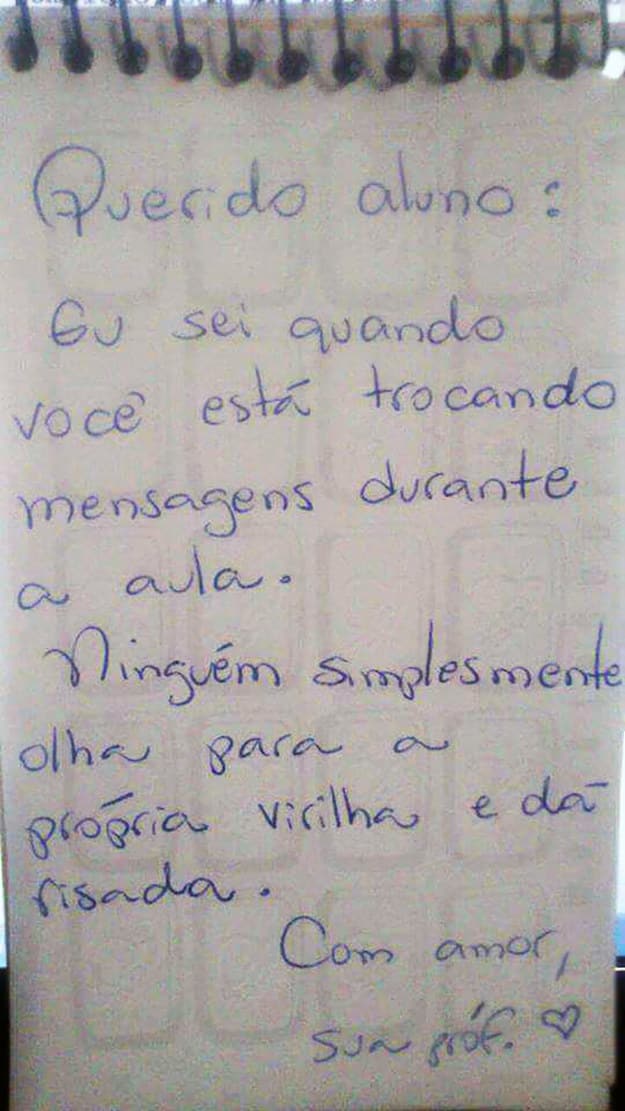 Querido aluno:
Eu sei quando
você está trocando
mensagens durante
a aula.
Ninguém simplesmente
olha para a
própria virilha e dá
risada.
Com amor,
sua próf. ♡